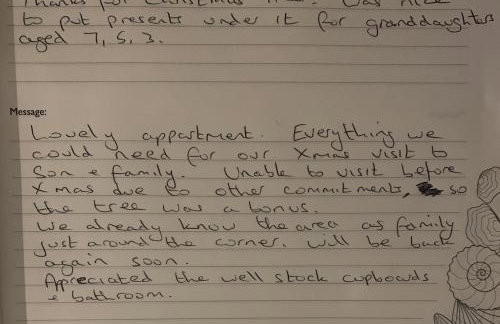 Thanks for Christmas tree. Was nice
to put presents under it for granddaughters
aged 7, 5, 3.
Message:
Lovely appartment. Everything we
could need for our Xmas visit to
Son & family. Unable to visit before
Xmas due to other commitments, so
the tree was a bonus.
We already know the area as family
just around the corner. Will be back
again soon.
Appreciated the well stock cupboards
& bathroom.